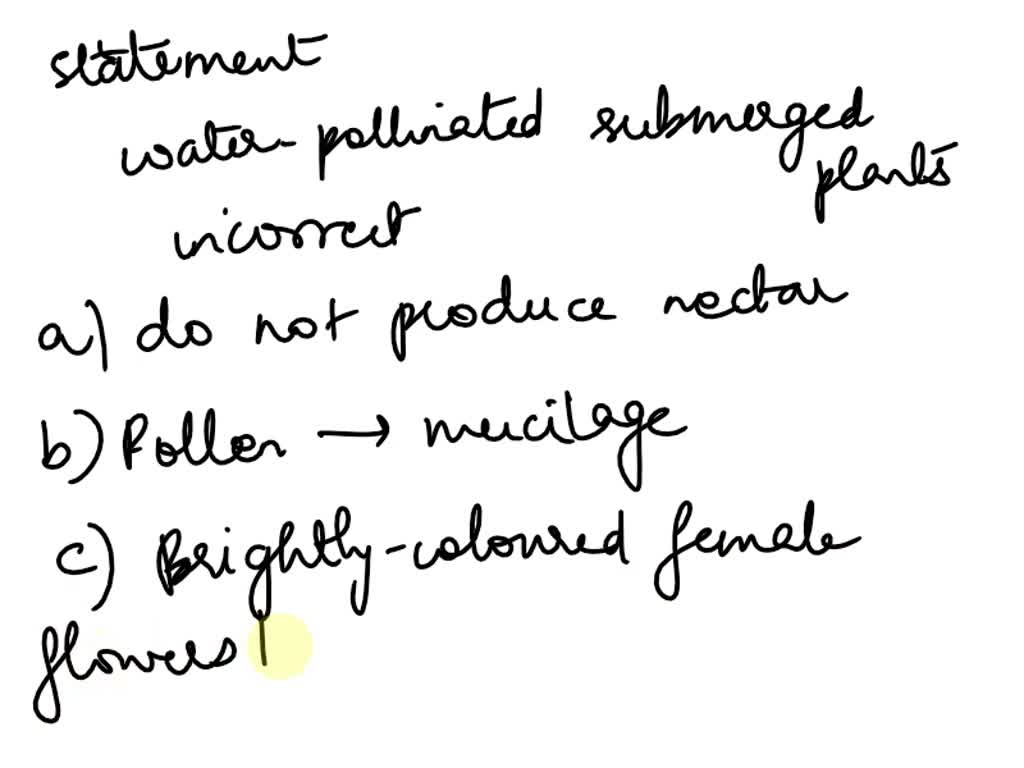 statement
water-pollinated submerged plants
incorrect
a) do not produce nectar
b) Pollen → mucilage
c) Brightly-coloured female
flowers